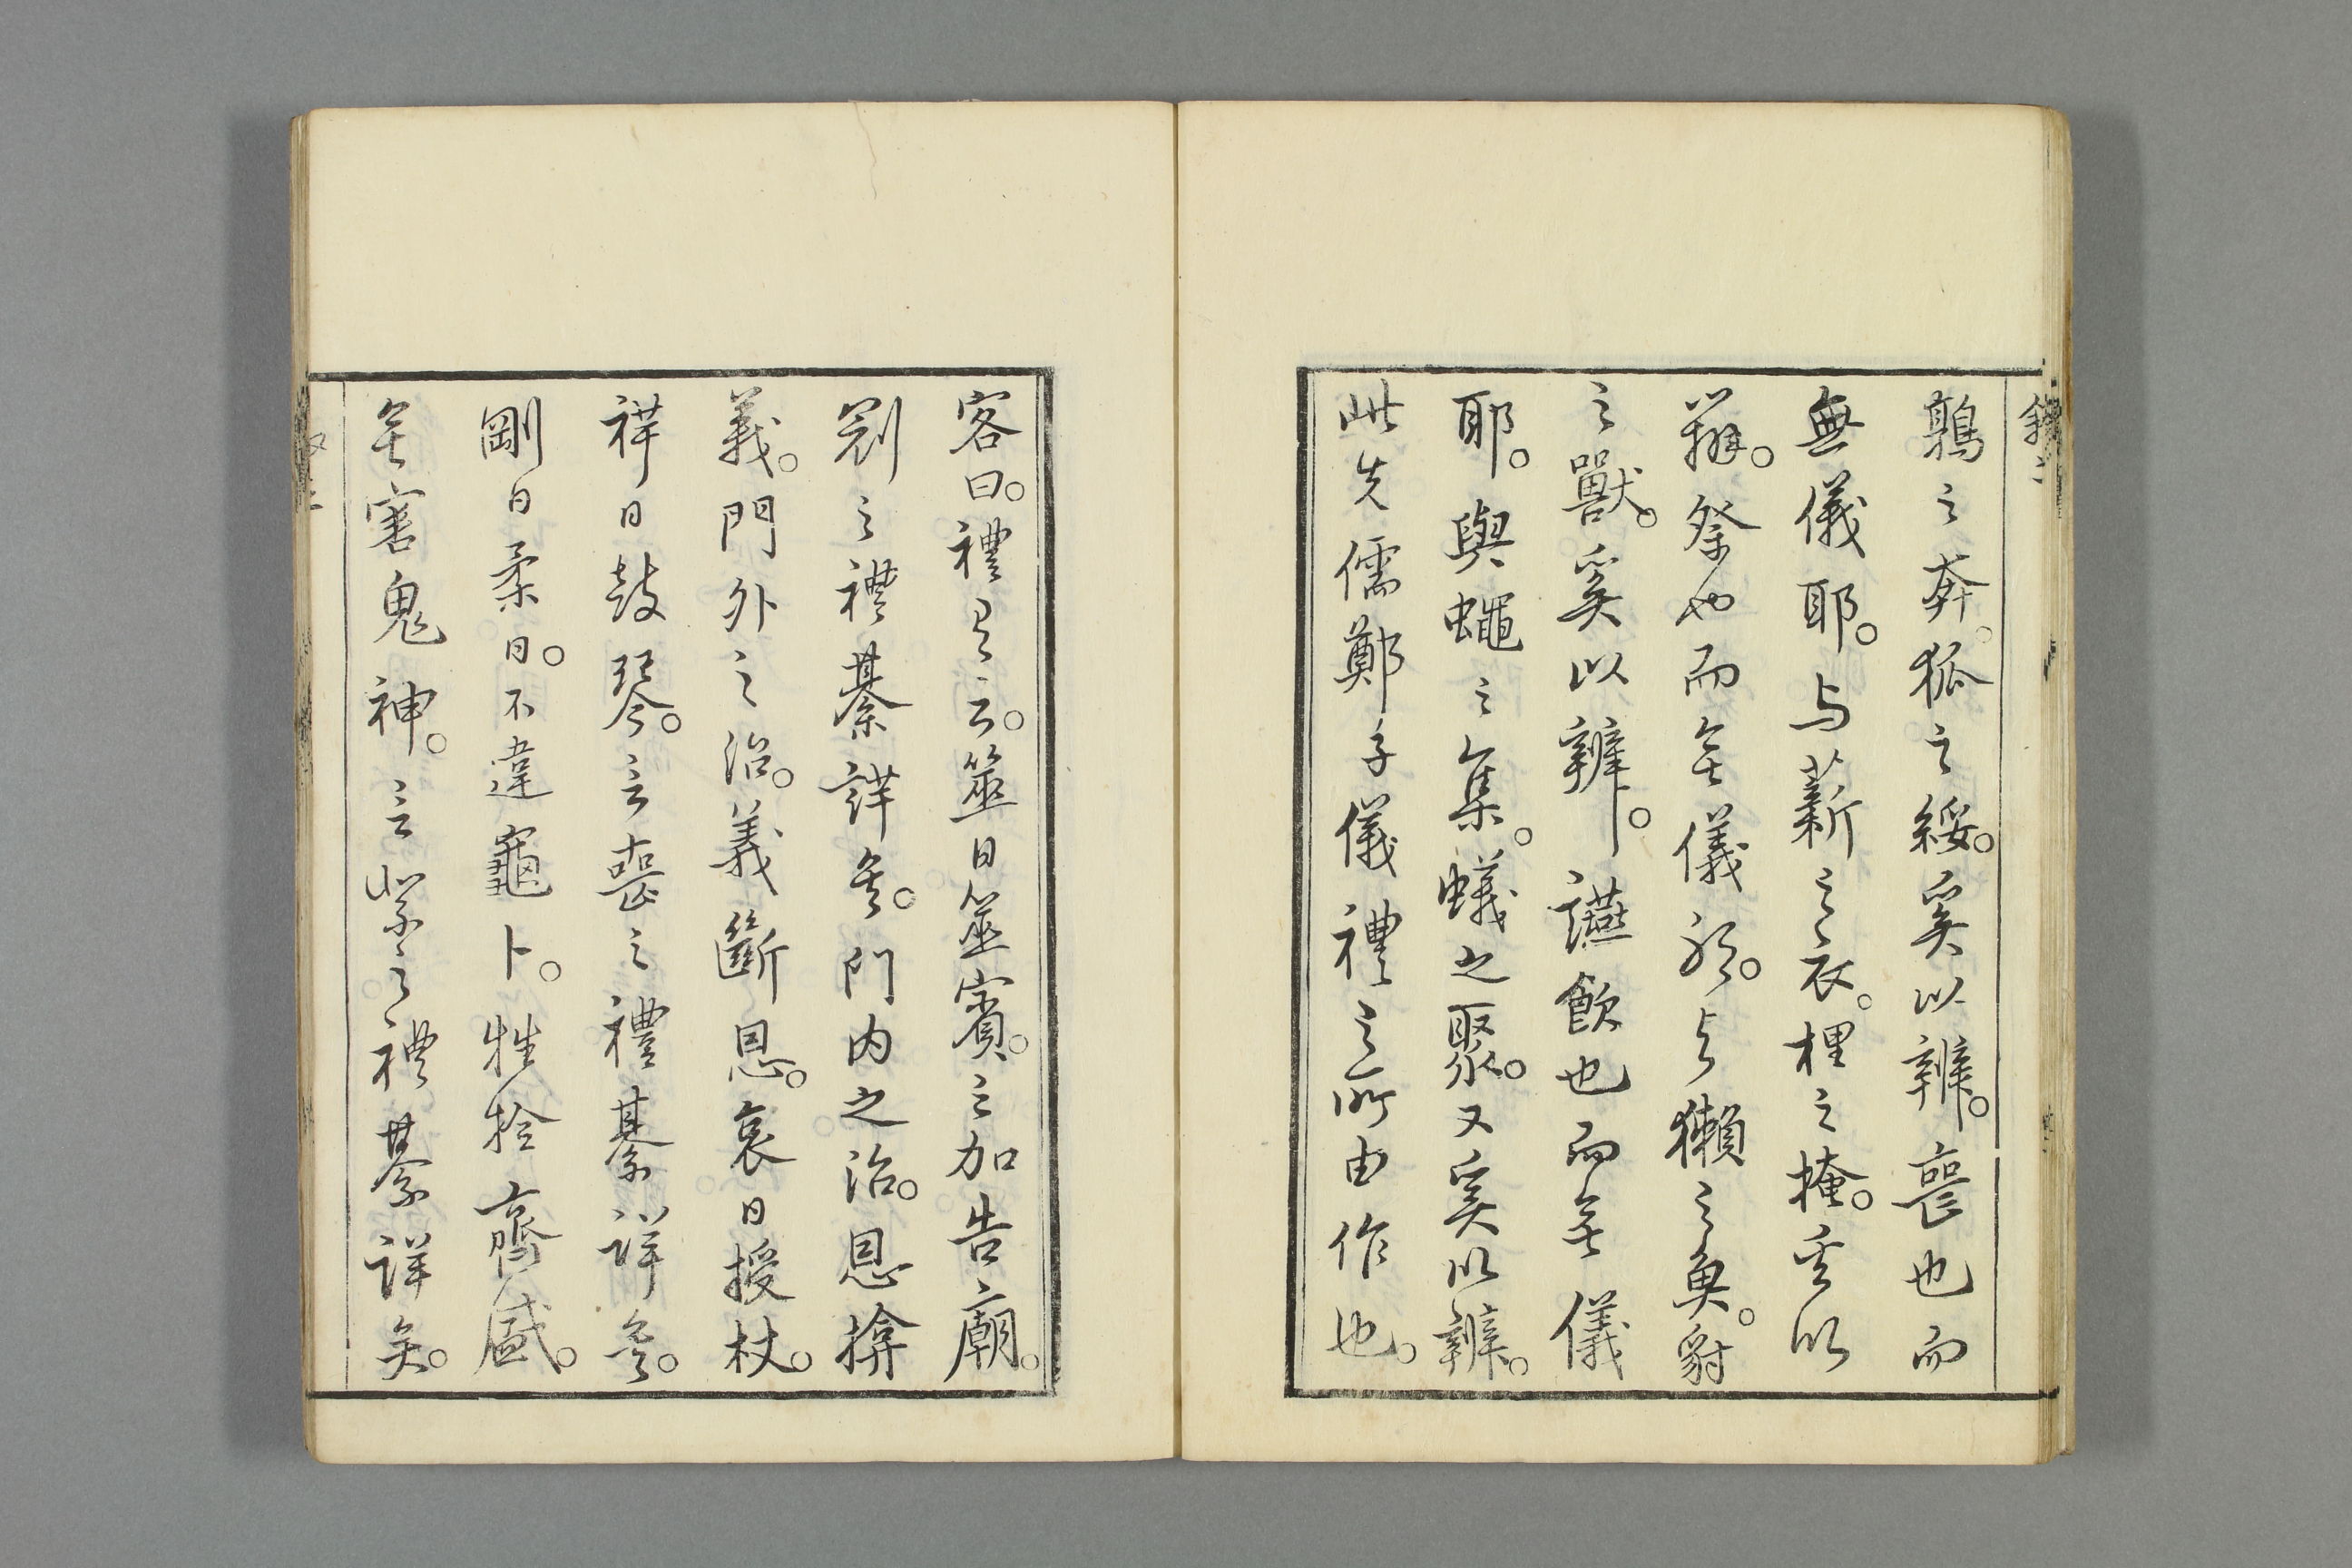 鶉之奔。狐之綏。奚以辨。喪也而
無儀耶。与薪之衣。梩之掩。奚以
辨。祭也而無儀耶。与獺之魚。豺
之獸。奚以辨。讌飲也而無儀
耶。與蠅之集。蟻之聚。又奚以辨。
此先儒鄭子儀禮之所由作也。
客曰。禮有云。筮日筮賓。三加告廟。
冠之禮綦詳矣。門内之治。恩揜
義。門外之治。義斷恩。哀日授杖。
祥日鼓琴。言喪之禮綦詳矣。
剛日柔日。不違龜卜。牲牷齊盛。
無害鬼神。言祭之禮綦詳矣。
叙二